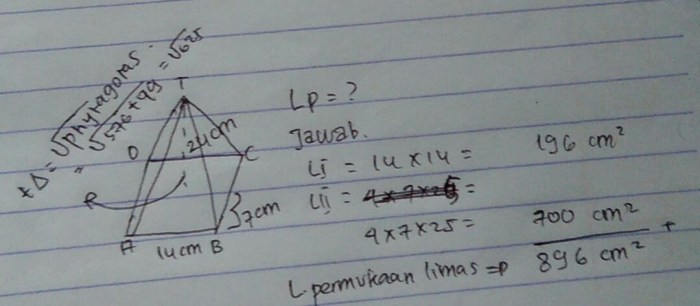 tΔ = √phytagoras.
= √576 + 49 = √625
T
24cm
D
C
R
7cm
A
14cm B
Lp = ?
Jawab.
LI = 14 x 14 = 196 cm²
LII = 4 x 7 x 25 =
4 x 7 x 25 = 700 cm²
+
L. permukaan limas => 896 cm²